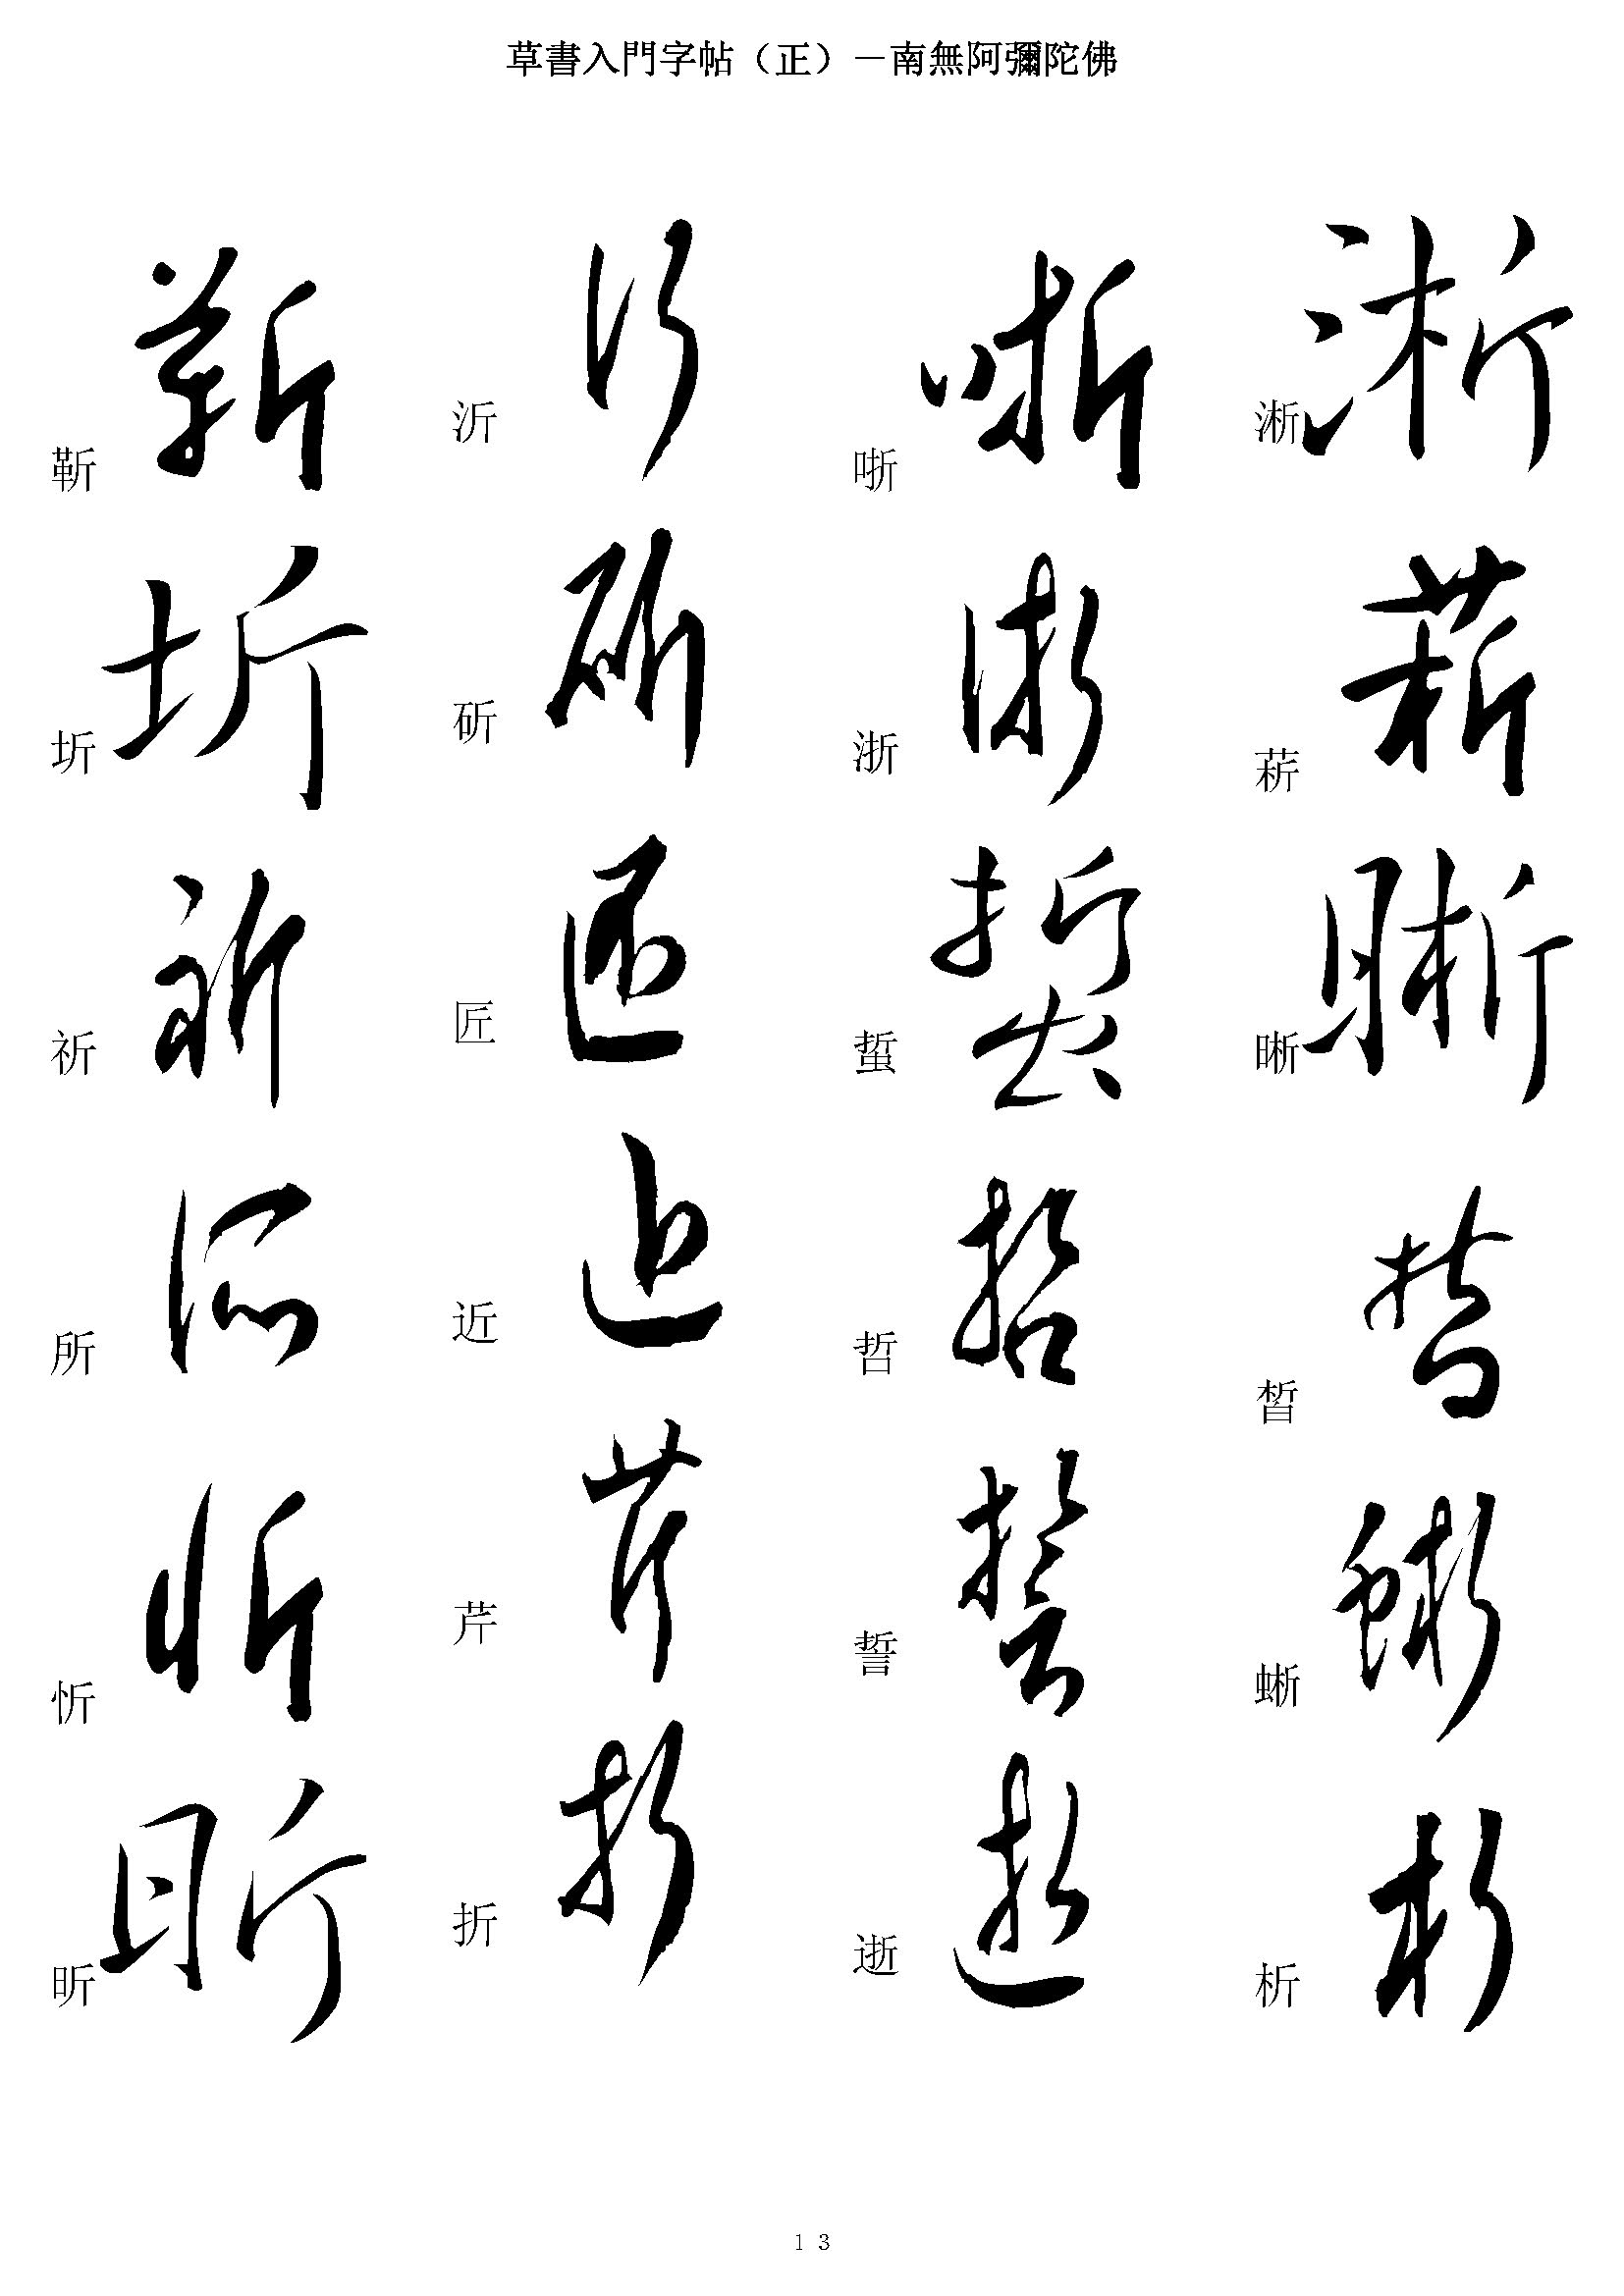 草書入門字帖（正）－南無阿彌陀佛
靳 沂 哳 淅
圻 斫 浙 菥
祈 匠 蜇 晰
所 近 哲 皙
忻 芹 誓 蜥
昕 折 逝 析
13